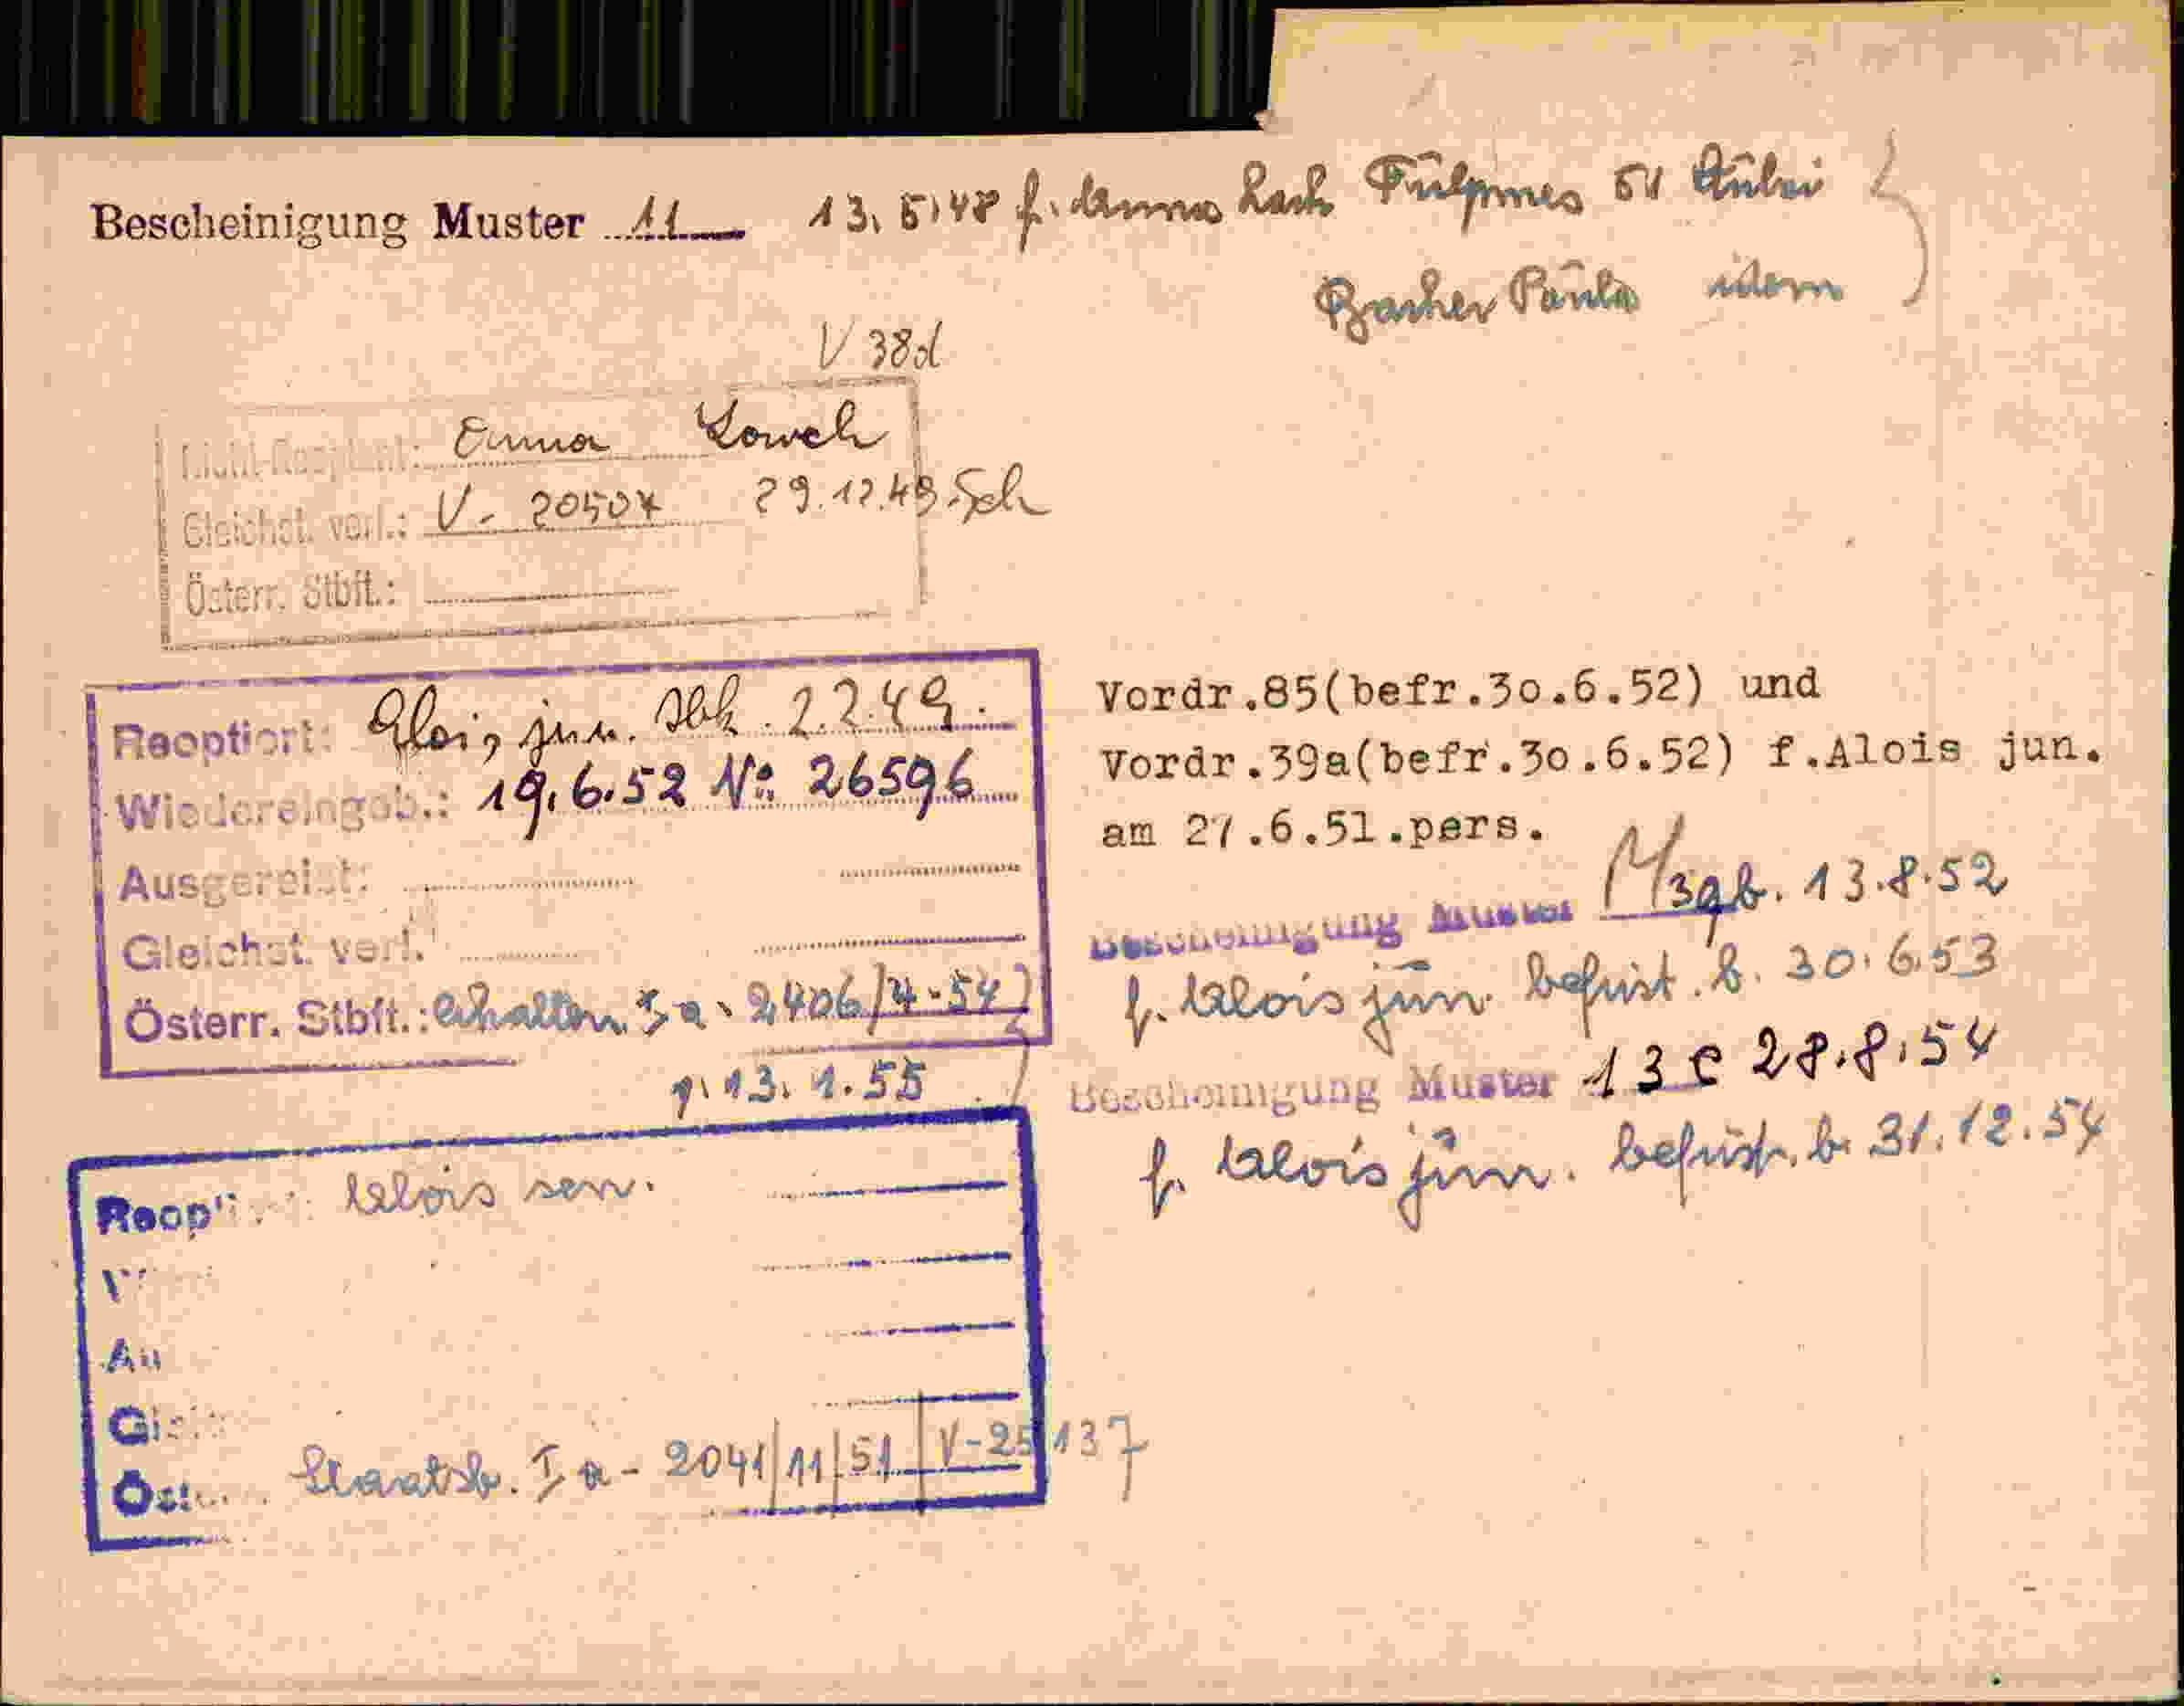 Bescheinigung Muster 11 13.5.48 f. Fulpmes 51 Stubai
Paula idem
V 38d
Emma
Gleichst. verl.: V- 29.12.49 Sch
Österr. Stbft.:
Reoptiert: Alois jun. 2.2.49.
Wiedereingeb.: 19.6.52 No 26596
Ausgereist:
Gleichst. verl.
Österr. Stbft.: erhalten Ia- 2406/4-54
v. 13.1.55
Vordr.85(befr.30.6.52) und
Vordr.39a(befr.30.6.52) f.Alois jun.
am 27.6.51.pers.
Bescheinigung Muster 13.8.52
f. Alois jun. befrist. b. 30.6.53
Bescheinigung Muster 13 c 28.8.54
f. Alois jun. befrist. b. 31.12.54
Reop Alois sen.
Au
Staatsb. Ia- 2041/11/51/V-25137